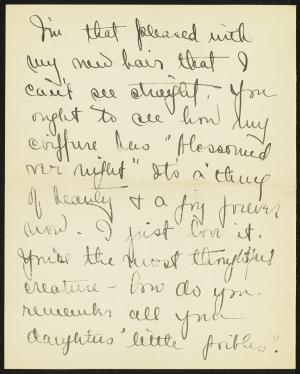 I'm that pleased with
my new hair that I
can't see straight. You
ought to see how my
coiffure has "blossomed
over night" It's a "thing
of beauty & a joy forever
now. I just love it.
You're the most thoughtful
creature - how do you
remember all your
daughters' little foibles?